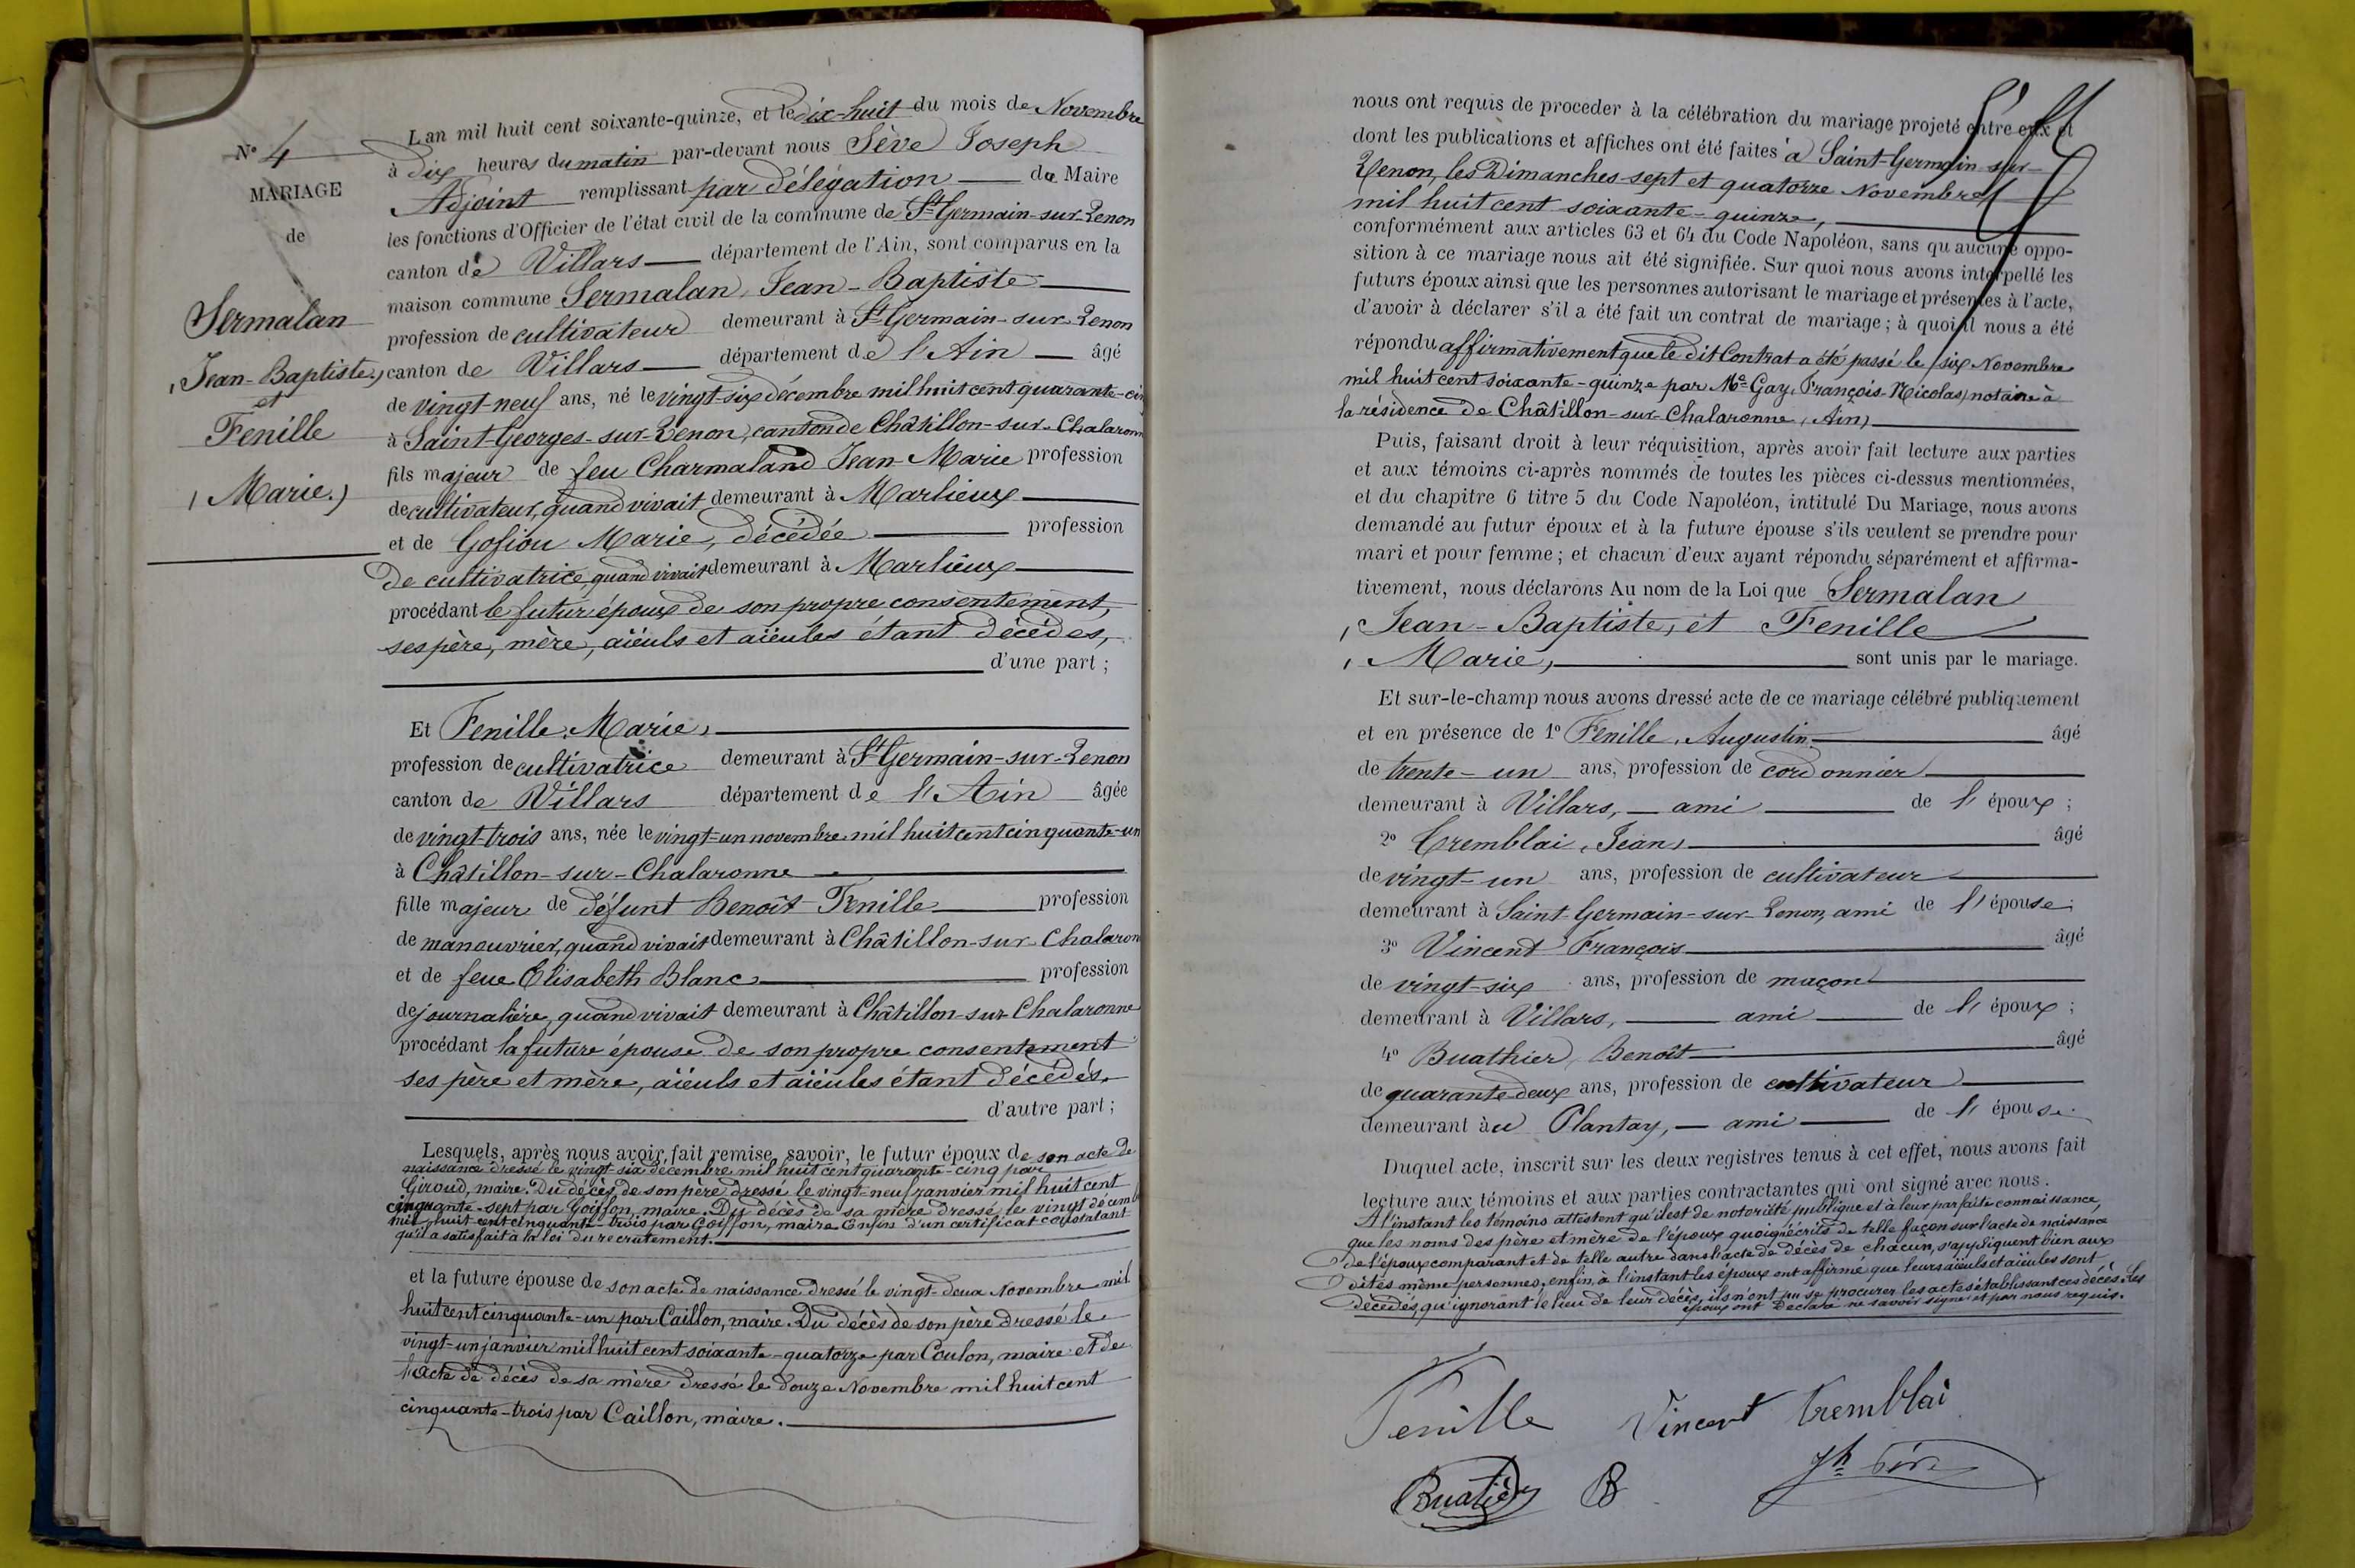 N° 4
MARIAGE
de
Sermalan
(Jean-Baptiste)
et
Fenille
(Marie.)
Lan mil huit cent soixante-quinze, et le dix-huit du mois de Novembre
à dix heures du matin par-devant nous Sève Joseph
Adjoint remplissant par délégation du Maire
les fonctions d'Officier de l'état civil de la commune de St Germain-sur-Renon
canton de Villars département de l'Ain, sont comparus en la
maison commune Sermalan, Jean-Baptiste
profession de cultivateur demeurant à St Germain-sur-Renon
canton de Villars département de l'Ain âgé
de vingt-neuf ans, né le vingt-six décembre mil huit cent quarante-cinq
à Saint-Georges-sur-Renon, canton de Châtillon-sur-Chalaronne
fils majeur de feu Charmaland Jean-Marie profession
de cultivateur, quand vivait demeurant à Marlieux
et de Gofion Marie, décédée profession
de cultivatrice, quand vivait demeurant à Marlieux
procédant le futur époux de son propre consentement,
ses père, mère, aïeuls et aïeules étant décédés,
d'une part ;
Et Fenille, Marie,
profession de cultivatrice demeurant à St Germain-sur-Renon
canton de Villars département de l'Ain âgée
de vingt-trois ans, née le vingt-un novembre mil huit cent cinquante-un
à Châtillon-sur-Chalaronne
fille majeur de défunt Benoît Fenille profession
de manouvrier, quand vivait demeurant à Châtillon-sur-Chalaron
et de feue Elisabeth Blanc profession
de journalière, quand vivait demeurant à Châtillon-sur-Chalaronne
procédant la future épouse de son propre consentement
ses père et mère, aïeuls et aïeules étant décédés.
d'autre part ;
Lesquels, après nous avoir fait remise, savoir, le futur époux de son acte de
naissance dressé le vingt-six décembre mil huit cent quarante-cinq par
Giroud, maire. Du décès de son père dressé le vingt-neuf janvier mil huit cent
cinquante-sept par Goiffon, maire. Du décès de sa mère dressé le vingt décemb
mil huit cent cinquante-trois par Goiffon, maire Enfin d'un certificat constatant
qu'il a satisfait à la loi du recrutement.
et la future épouse de son acte de naissance dressé le vingt-deux Novembre mil
huit cent cinquante-un par Caillon, maire. Du décès de son père dressé le
vingt-un janvier mil huit cent soixante-quatorze par Coulon, maire et de
l'acte de décès de sa mère dressé le douze Novembre mil huit cent
cinquante-trois par Caillon, maire.
nous ont requis de proceder à la célébration du mariage projeté entre eux et
dont les publications et affiches ont été faites à Saint-Germain-sur-
Renon, les Dimanches sept et quatorze Novembre
mil huit cent soixante-quinze,
conformément aux articles 63 et 64 du Code Napoléon, sans qu'aucune oppo-
sition à ce mariage nous ait été signifiée. Sur quoi nous avons interpellé les
futurs époux ainsi que les personnes autorisant le mariage et présentes à l'acte,
d'avoir à déclarer s'il a été fait un contrat de mariage ; à quoi il nous a été
répondu affirmativement que le dit Contrat a été passé le six Novembre
mil huit cent soixante-quinze par Me Gay, François-Nicolas, notaire à
la résidence de Châtillon-sur-Chalaronne (Ain)
Puis, faisant droit à leur réquisition, après avoir fait lecture aux parties
et aux témoins ci-après nommés de toutes les pièces ci-dessus mentionnées,
et du chapitre 6 titre 5 du Code Napoléon, intitulé Du Mariage, nous avons
demandé au futur époux et à la future épouse s'ils veulent se prendre pour
mari et pour femme ; et chacun d'eux ayant répondu séparément et affirma-
tivement, nous déclarons Au nom de la Loi que Sermalan
(Jean-Baptiste, et Fenille
(Marie, sont unis par le mariage.
Et sur-le-champ nous avons dressé acte de ce mariage célébré publiquement
et en présence de 1° Fenille, Augustin, âgé
de trente-un ans, profession de cordonnier
demeurant à Villars, ami de l'époux ;
2° Tremblai, Jean, âgé
de vingt-un ans, profession de cultivateur
demeurant à Saint-Germain-sur-Renon, ami de l'épouse ;
3° Vincent François âgé
de vingt-six ans, profession de maçon
demeurant à Villars, ami de l'époux ;
4° Buathier, Benoît âgé
de quarante-deux ans, profession de cultivateur
demeurant au Plantay, ami de l'épouse.
Duquel acte, inscrit sur les deux registres tenus à cet effet, nous avons fait
lecture aux témoins et aux parties contractantes qui ont signé avec nous.
A l'instant les témoins attestent qu'il est de notoriété publique et à leur parfaite connaissance,
que les noms des père et mère de l'époux quoiqu'écrits de telle façon sur l'acte de naissance
de l'époux comparant et de telle autre dans l'acte de décès de chacun, s'appliquent bien aux
dites même personnes, enfin, à l'instant les époux ont affirmé que leurs aïeuls et aïeules sont
décédés, qu'ignorant le lieu de leur décès, ils n'ont pu se procurer les actes établissant ces décès. Les
époux ont déclaré ne savoir signer et par nous requis.
Fenille Vincent Tremblai
Buatier B Jh Sève